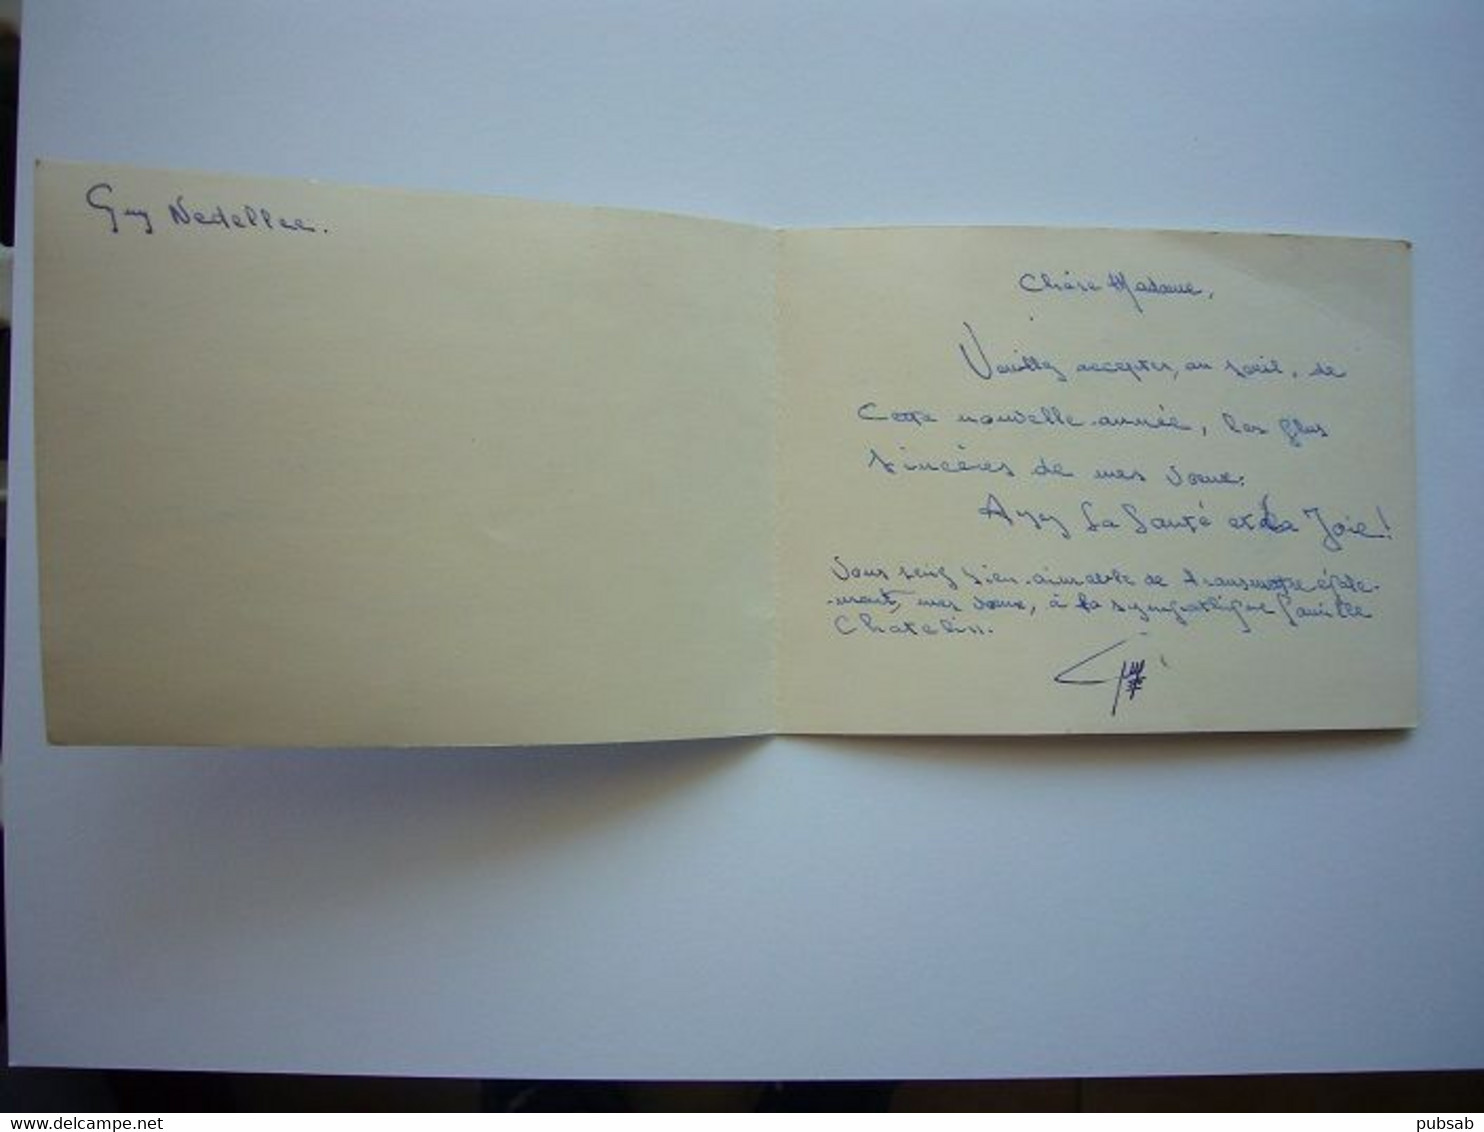 Guy Nedellec.
Chère Madame,
Veuillez accepter, au seuil, de
Cette nouvelle année, les plus
sincères de mes voeux.
Ayez la Santé et la Joie!
Vous seriez bien aimable de transmettre égale-
-ment, mes voeux, à la sympathique famille
Chatelin.
www.delcampe.net
pubsab